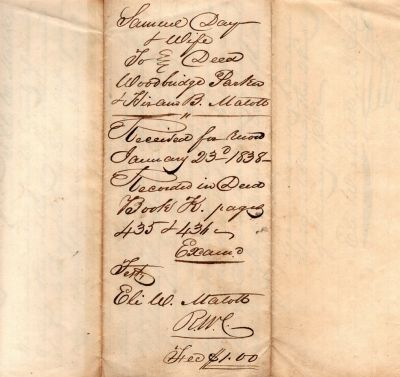 Samuel Day
& Wife
To Deed
Woodbridge Parker
& Hiram B. Matott
"
Received for Record
January 23d 1838
Recorded in Deed
Book K. pages
435 & 436
Examd
Test,
Eli W. Matott
R.W.C.
Fee $1.00